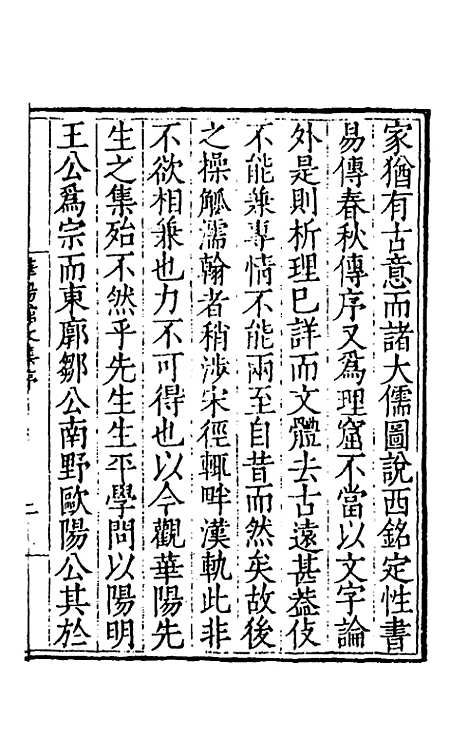 家猶有古意而諸大儒圖說西銘定性書
易傳春秋傳序又爲理窟不當以文字論
外是則析理巳詳而文體去古遠甚葢伎
不能兼專情不能兩至自昔而然矣故後
之操觚濡翰者稍涉宋徑輒畔漢軌此非
不欲相兼也力不可得也以今觀華陽先
生之集殆不然乎先生生平學問以陽明
王公爲宗而東廓鄒公南野歐陽公其於
華陽館文集序
二